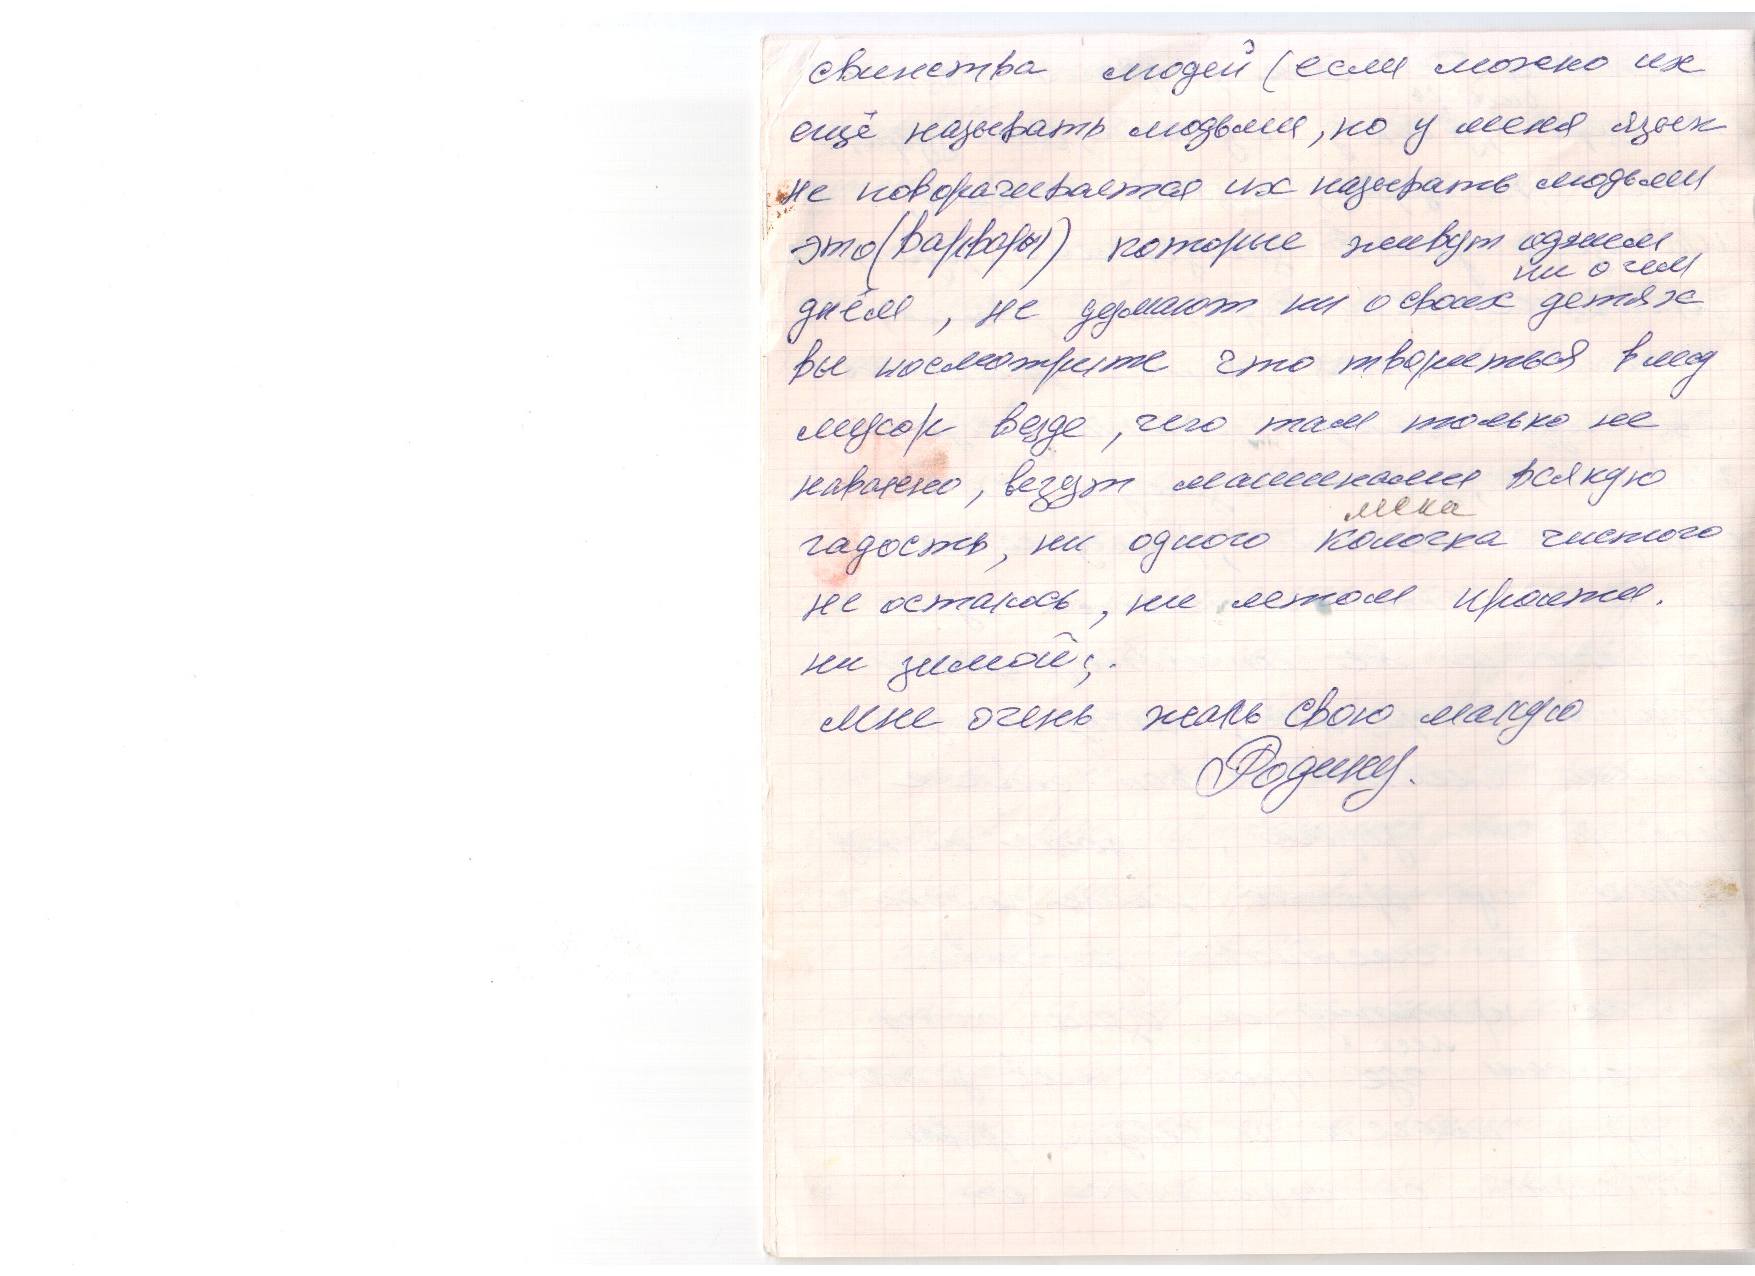 свинства людей (если можно их
ещё называть людьми, но у меня язык
не поворачивается их называть людьми
это (варвары) которые живут одним
ни о чем
днём, не думают ни о своих детях
вы посмотрите что твориться в лесу
мусор везде, чего там только не
навалено, везут машинами всякую
гадость, ни одного колочка чистого
леса
не осталось, ни летом пройти.
ни зимой;.
мне очень жаль свою малую
Родину.